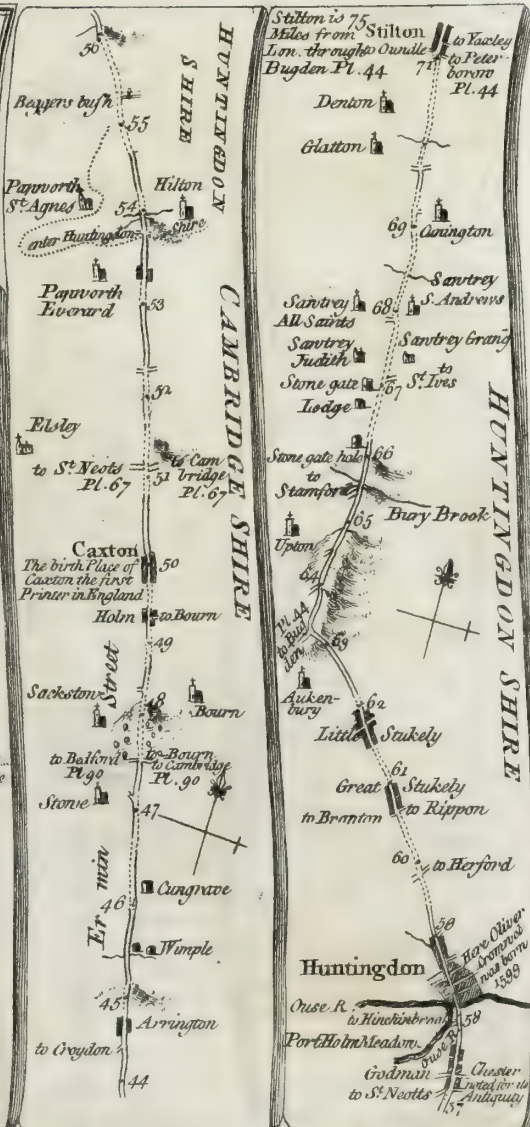 56
Beggers bush
55
HUNTINGDON
SHIRE
Papworth
St. Agnes
Hilton
54
enter Huntingdon Shire
Papworth
Everard
53
CAMBRIDGE SHIRE
52
Elsley
to St Neots
Pl. 67
51
to Cam
bridge
Pl. 67
Caxton
50
The birth Place of
Caxton the first
Printer in England
Holm
to Bourn
49
Sackston
48
Bourn
to Bedford
Pl 90
to Bourn
to Cambridge
Pl. 90
Stowe
47
Cungrave
46
Ermin Street
Wimple
45
Arrington
to Croydon
44
Stilton is 75
Miles from
Lon. through
Bugden Pl. 44
Stilton
to Oundle
71
to Yaxley
to Peter
bororo
Pl. 44
Denton
Glatton
69
Cunington
Sawtrey
S. Andrews
Sawtrey
All Saints
68
Sawtrey
Judith
Sawtrey Grang
Stone gate
67
to
St. Ives
Lodge
HUNTINGDON SHIRE
Stone gate hole
66
to
Stamford
65
Bury Brook
Upton
64
Pl. 44
to Bug
den
63
Aukenbury
62
Little Stukely
61
Great Stukely
to Branton
to Rippon
60
to Herford
Huntingdon
Here Oliver
Cromwel
was born
1599
Ouse R.
to Hinchinbrook
58
Port Holm Meadow
Ouse R.
Godman Chester
to St. Neotts
noted for its
Antiquity
57